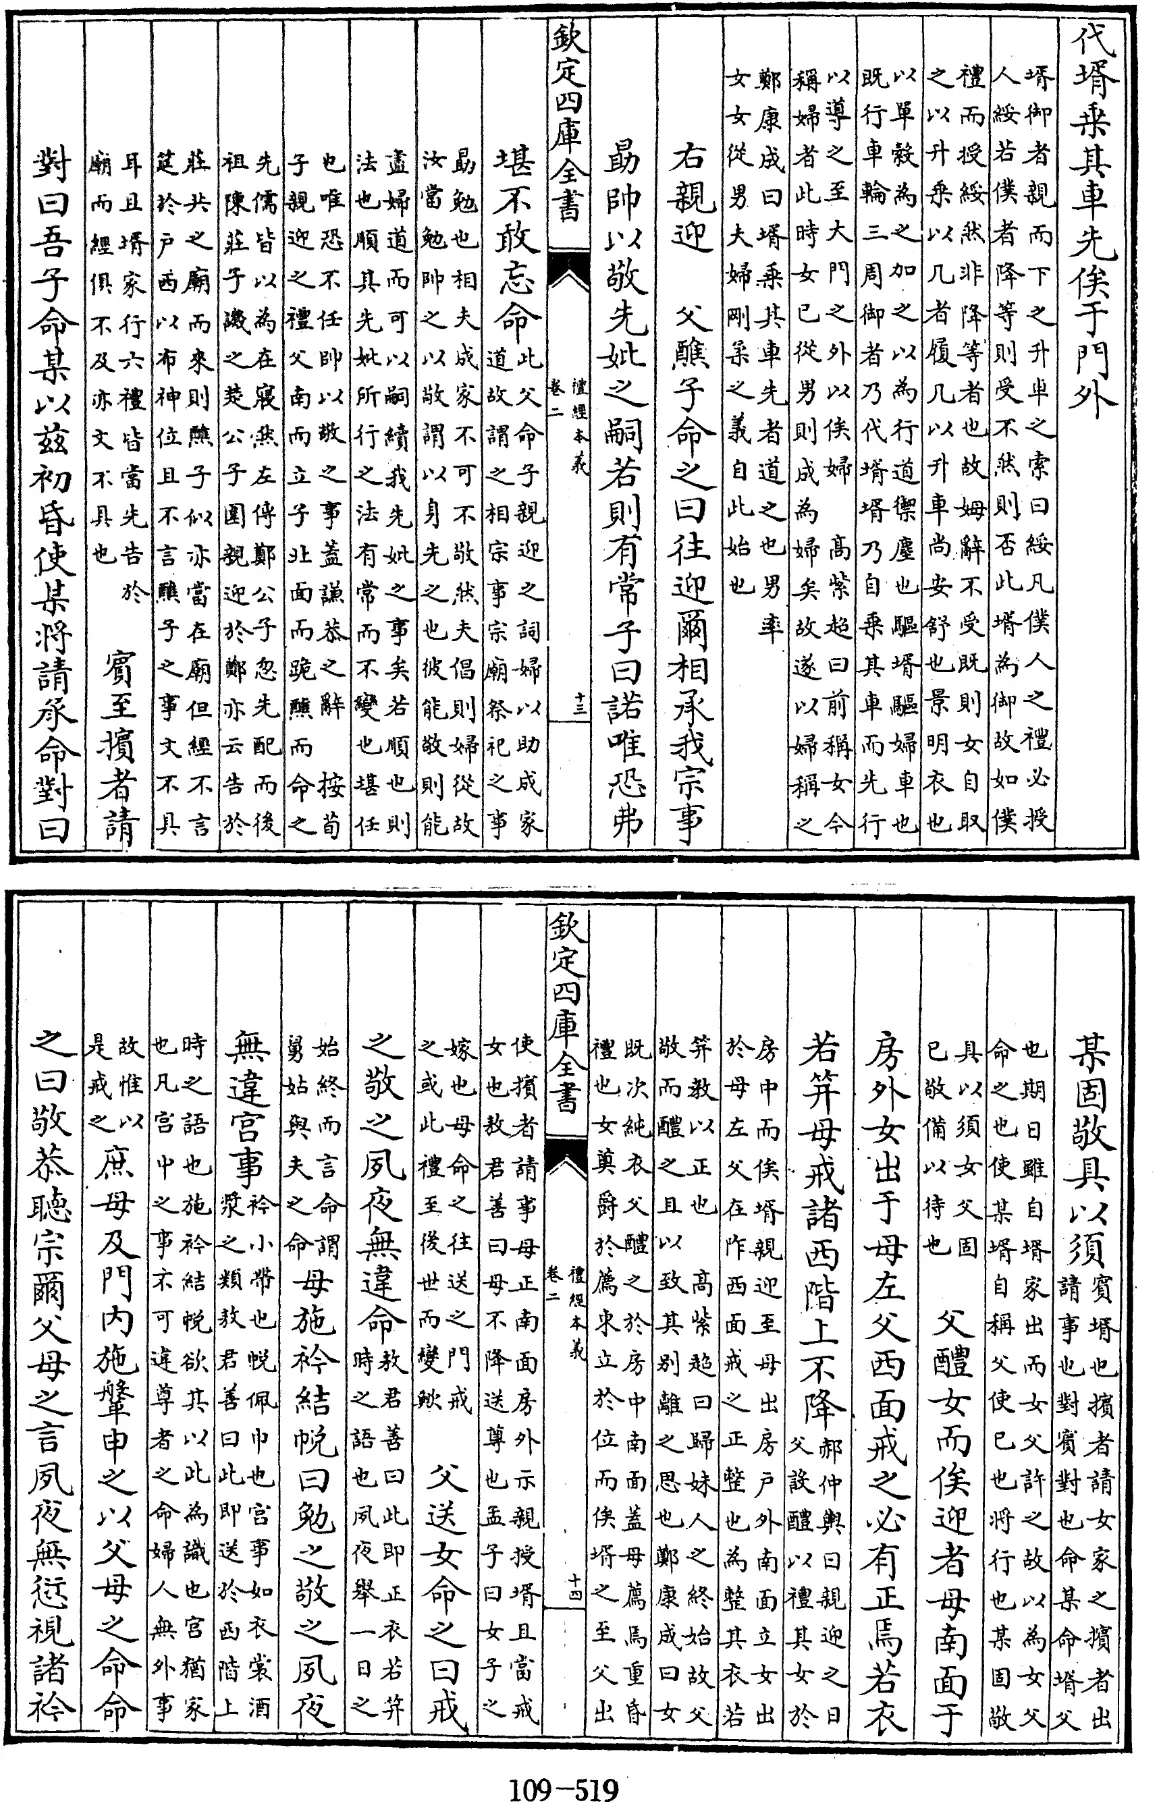 代壻乗其車先俟于門外
壻御者親而下之升車之索曰綏凡僕人之禮必授
人綏若僕者降等則受不然則否此壻為御故如僕
禮而授綏然非降等者也故姆辭不受既則女自取
之以升乗以几者履几以升車尚安舒也景明衣也
以單縠為之加之以為行道禦塵也驅壻驅婦車也
既行車輪三周御者乃代壻壻乃自乗其車而先行
以導之至大門之外以俟婦 髙紫超曰前稱女今
稱婦者此時女已從男則成為婦矣故遂以婦稱之
鄭康成曰壻乗其車先者道之也男率
女女從男夫婦剛柔之義自此始也
右親迎 父醮子命之曰往迎爾相承我宗事
勗帥以敬先妣之嗣若則有常子曰諾唯恐弗
欽定四庫全書
禮經本義
卷二
十三
堪不敢忘命
此父命子親迎之詞婦以助成家
道故謂之相宗事宗廟祭祀之事
勗勉也相夫成家不可不敬然夫倡則婦從故
汝當勉帥之以敬謂以身先之也彼能敬則能
盡婦道而可以嗣續我先妣之事矣若順也則
法也順其先妣所行之法有常而不變也堪任
也唯恐不任帥以敬之事蓋謙恭之辭 按荀
子親迎之禮父南而立子北面而跪醮而命之
先儒皆以為在寢然左傳鄭公子忽先配而後
祖陳莊子譏之楚公子圍親迎於鄭亦云告於
莊共之廟而來則醮子似亦當在廟但經不言
筵於户西以布神位且不言醮子之事文不具
耳且壻家行六禮皆當先告於
廟而經俱不及亦文不具也
賓至擯者請
對曰吾子命某以兹初昏使某將請承命對曰
某固敬具以須
賓壻也擯者請女家之擯者出
請事也對賓對也命某命壻父
也期日雖自壻家出而女父許之故以為女父
命之也使某壻自稱父使已也將行也某固敬
具以須女父固
已敬備以待也
父醴女而俟迎者母南面于
房外女出于母左父西面戒之必有正焉若衣
若笄母戒諸西階上不降
郝仲輿曰親迎之日
父設醴以禮其女於
房中而俟壻親迎至母出房户外南面立女出
於母左父在阼西面戒之正整也為整其衣若
笄教以正也 髙紫超曰歸妹人之終始故父
敬而醴之且以致其別離之思也鄭康成曰女
既次純衣父醴之於房中南面蓋母薦焉重昏
禮也女奠爵於薦東立於位而俟壻之至父出
欽定四庫全書
禮經本義
卷二
十四
使擯者請事母正南面房外示親授壻且當戒
女也敖君善曰母不降送尊也孟子曰女子之
嫁也母命之往送之門戒
之或此禮至後世而變歟
父送女命之曰戒
之敬之夙夜無違命
敖君善曰此即正衣若笄
時之語也夙夜舉一日之
始終而言命謂
舅姑與夫之命
母施衿結帨曰勉之敬之夙夜
無違宮事
衿小帶也帨佩巾也宮事如衣裳酒
漿之類敖君善曰此即送於西階上
時之語也施衿結帨欲其以此為識也宮猶家
也凡宮中之事不可違尊者之命婦人無外事
故惟以
是戒之
庶母及門内施鞶申之以父母之命命
之曰敬恭聽宗爾父母之言夙夜無愆視諸衿
109-519